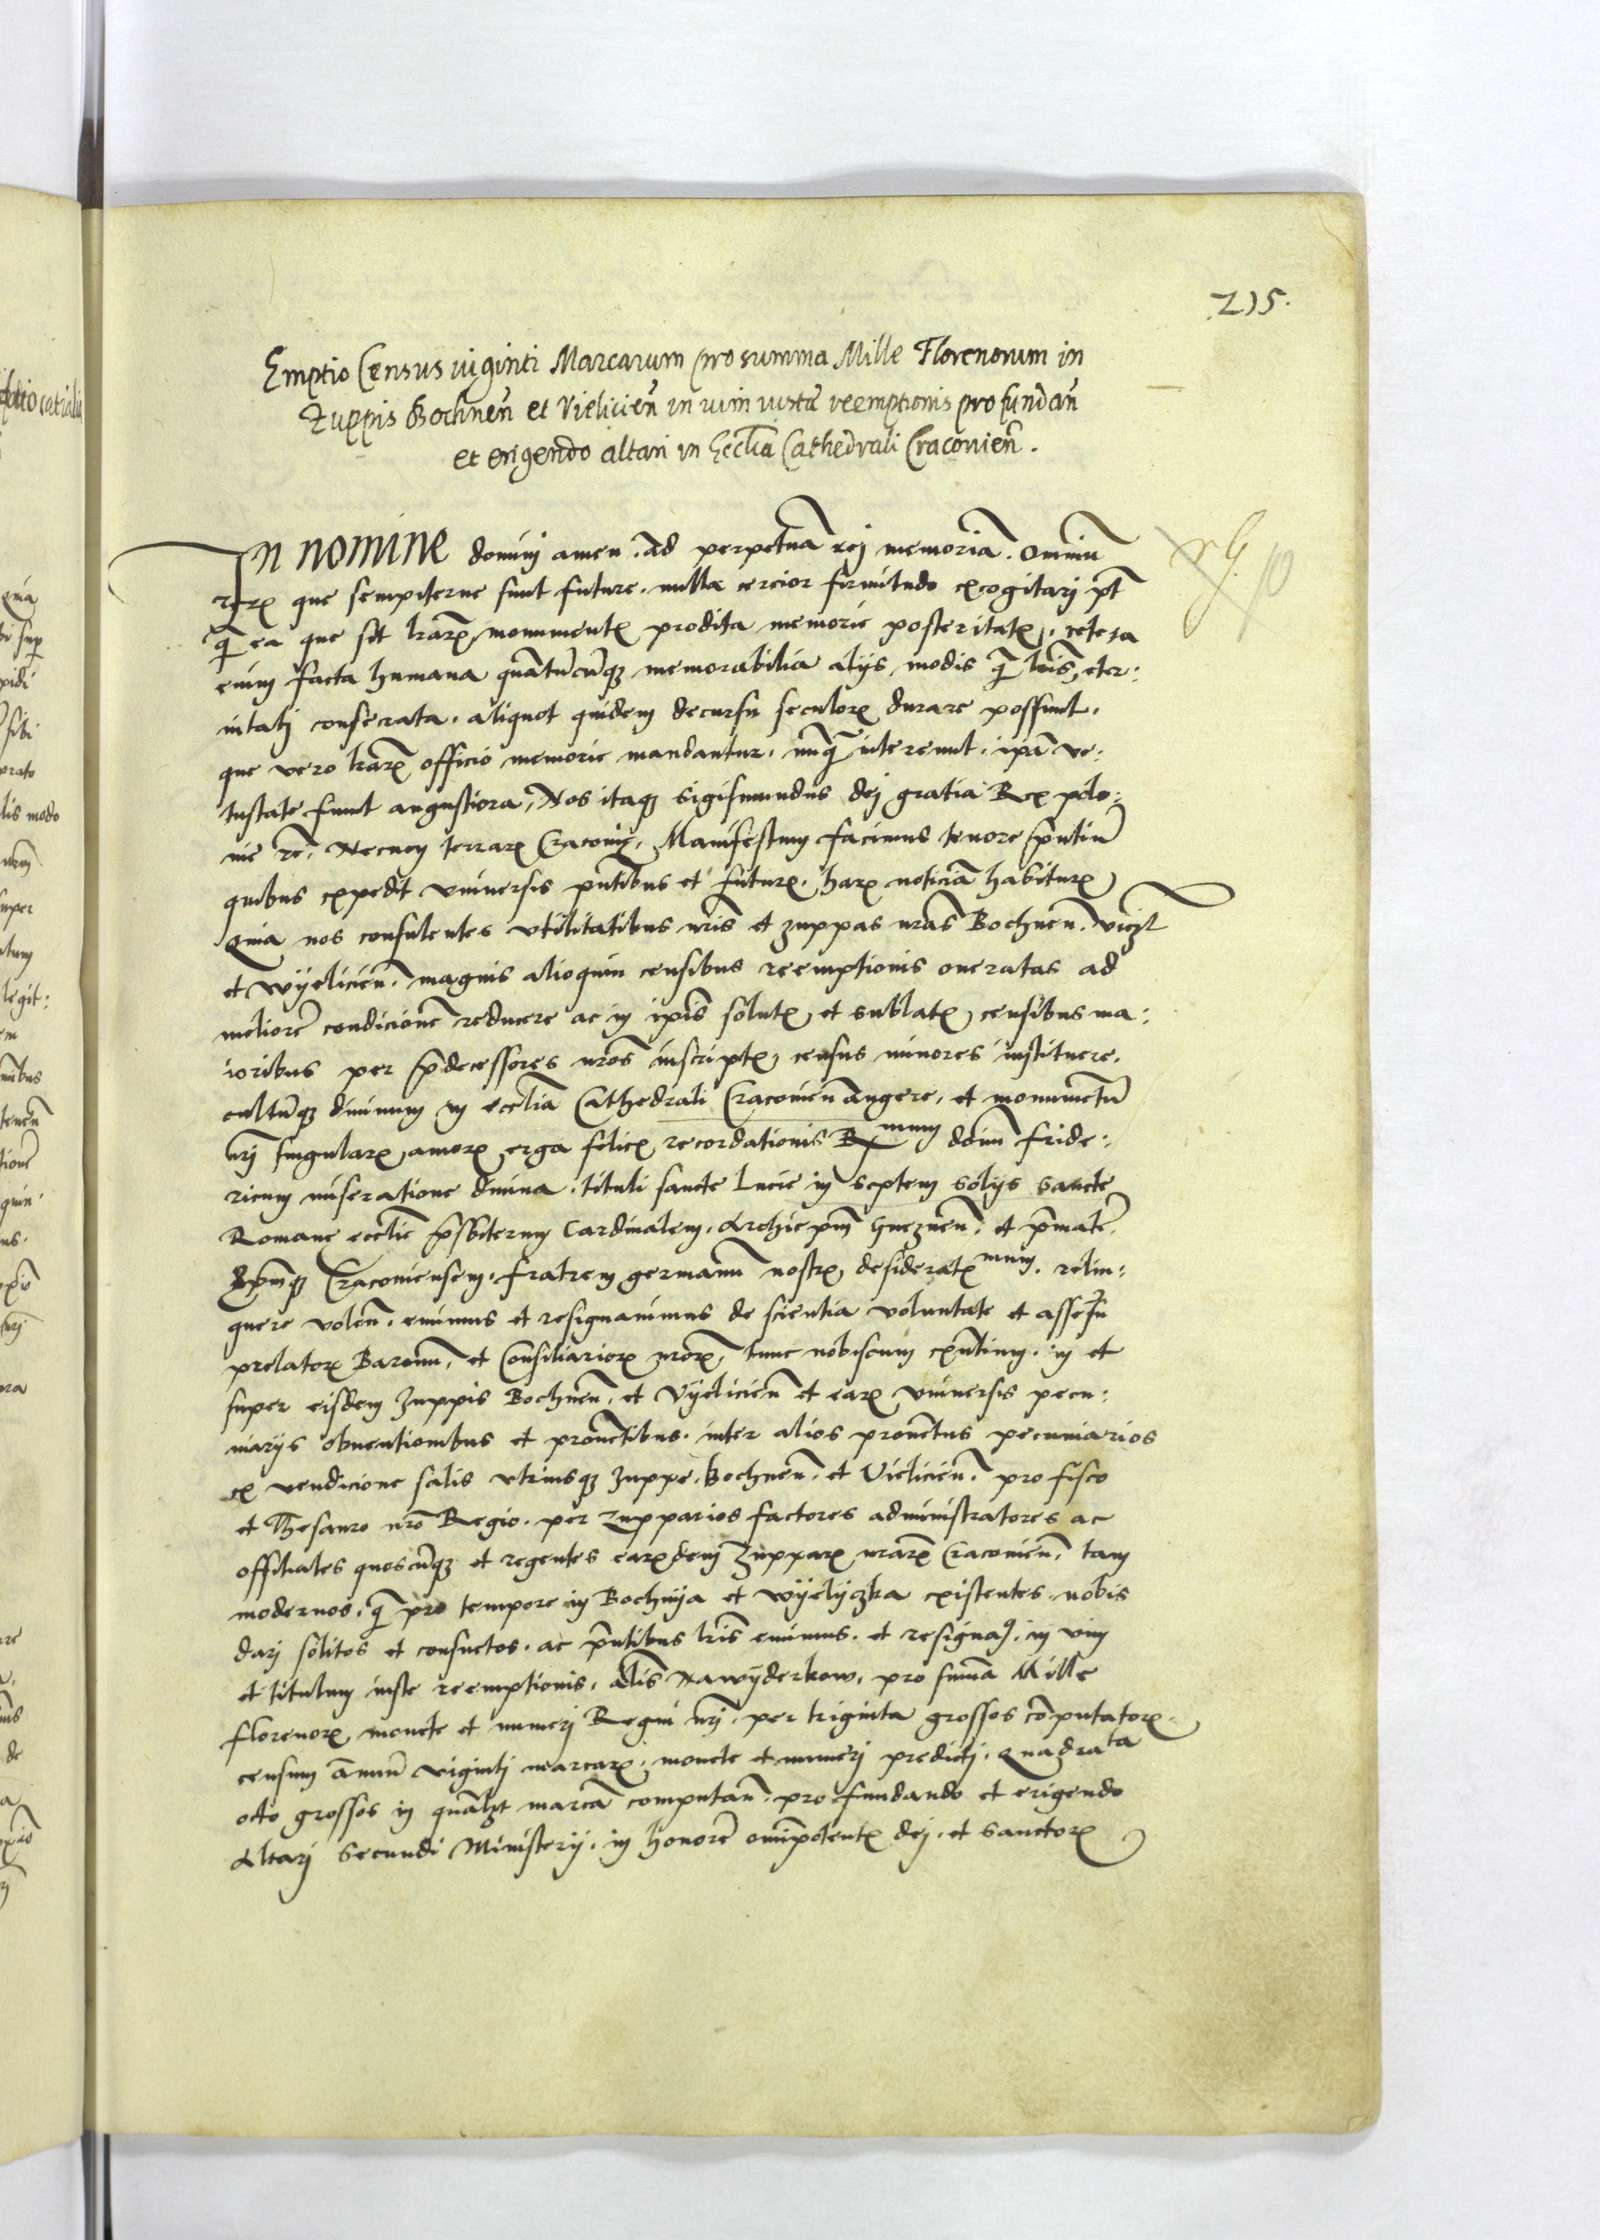 215.
Emptio Census viginti Marcarum pro summa Mille Florenorum in
Zuppis Bochneñ et Vielicieñ in vim iustæ reemptionis pro fundań
et erigendo altari in Ecclīa Cathedrali Cracovieñ.
In nomine domini amen. Ad perpetuā rej memoriā. Omniū
rerꝝ que sempiterne sunt future. nulla cercior firmitudo excogitarj pt̄
q̄ ea que fit l̄rarꝝ monumentꝭ prodita memorie posteritatꝭ. cetera
enim facta humana quātūcūqꝫ memorabilia alijs modis q̄ l̄ris eter:
nitatj consecrata. aliquot quidem decursu seculorꝝ durare possunt.
que vero l̄rarꝝ officio memorie mandantur. nūq̄ intereunt. ip̄a ve:
tustate sunt angustiora, Nos itaqꝫ Sigismundus dej gratia Rex polo:
nie rc̄. Necnon terrarꝝ Cracovie, Manifestum facimus tenore p̄ntiū
quibus expedit vniversis pn̄tibus et futurꝭ. harꝝ noticiā habiturꝭ
Quia nos consulentes vtilitatibus nr̄is et zuppas nr̄as Bochneñ. viczꝫ
et Wyelicieñ. magnis alioquin censibus reemptionis oneratas ad
meliorē condicionē reducere ac in ip̄is solutꝭ et sublatꝭ censibus ma:
ioribus per p̄decessores nr̄os inscriptꝭ, census minores instituere.
cultūqꝫ diuinum in eccl̄ia Cathedrali Cracovieñ augere, et monumētū
nr̄j singularꝭ amorꝭ erga felicꝭ recordationis Rmum dn̄m fride:
ricum miseratione diuina. tituli sancte Lucie in septem solijs Sancte
Romane eccl̄ie p̄sbiterum Cardinalem. Archiep̄m Gnezneñ. et p̄matē.
Ep̄mqꝫ Cracoviensem. fratrem germanū nostrꝭ desideratꝭmum. relin:
quere voleñ. emimus et resignavimus de scientia voluntate et assēsu
prelatorꝝ Baronū, et Consiliariorꝝ nr̄orꝝ, tunc nobiscum exn̄tium. in et
super eisdem zuppis Bochneñ. et Vyelicieñ et earꝝ vniversis pecu:
niarijs obuentionibus et prouētibus. inter alios prouentus pecuniarios
ex vendicione salis vtriusqꝫ zuppe. Bochneñ. et Vielicieñ. pro fisco
et Thesauro nr̄o Regio. per zupparios factores administratores ac
officiales quoscūqꝫ et regentes earꝝdem zupparꝝ nr̄arꝝ Cracovieñ. tam
modernos. q̄ pro tempore in Bochnya et Wyelyczka existentes. nobis
darj solitos et consuetos. ac pn̄tibus l̄ris emimus. et resignaꝰ. in vim
et titulum iuste reemptionis. al̄s Nawyderkow. pro sum̄a Mille
florenorꝝ monete et numerj Regni nr̄j. per triginta grossos cōputatorꝝ.
censum an̄nuū vigintj marcarꝝ. monete et numerj predictj. Quadra ta
octo grossos in quālꝫt marcā computań. pro fundando et erigendo
Altarj Secundi Ministerij. in honorē omīpotentꝭ dej. et Sanctorꝝ